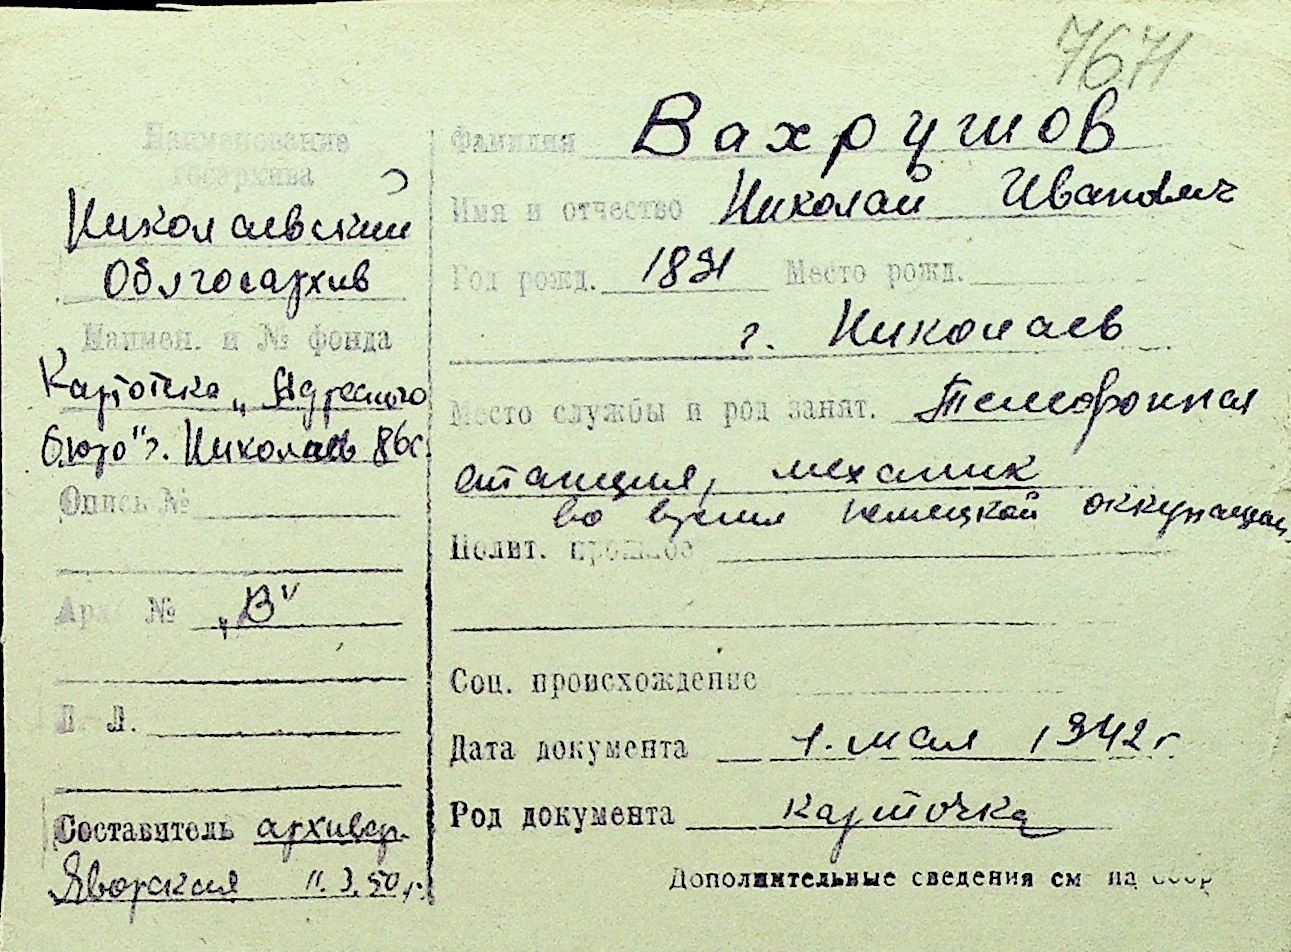 7671
Наименование
госархива
Николаевский
Облгосархив
Наимен. и № фонда
Картотека „Адресного
бюро" г. Николаев 86с.
Опись №
Арх. № „В"
Л. Л.
Составитель архивар.
Яворская 11.3.50 г.
Фамилия Вахрушов
Имя и отчество Николай Иванович
Год рожд. Место рожд.
г. Николаев
Место службы и род занят. Телефонная
станция, механик
во время немецкой оккупации
Полит. прошлое
Соц. происхождение
Дата документа 1. мая 1942 г
Род документа карточка
Дополнительные сведения см на